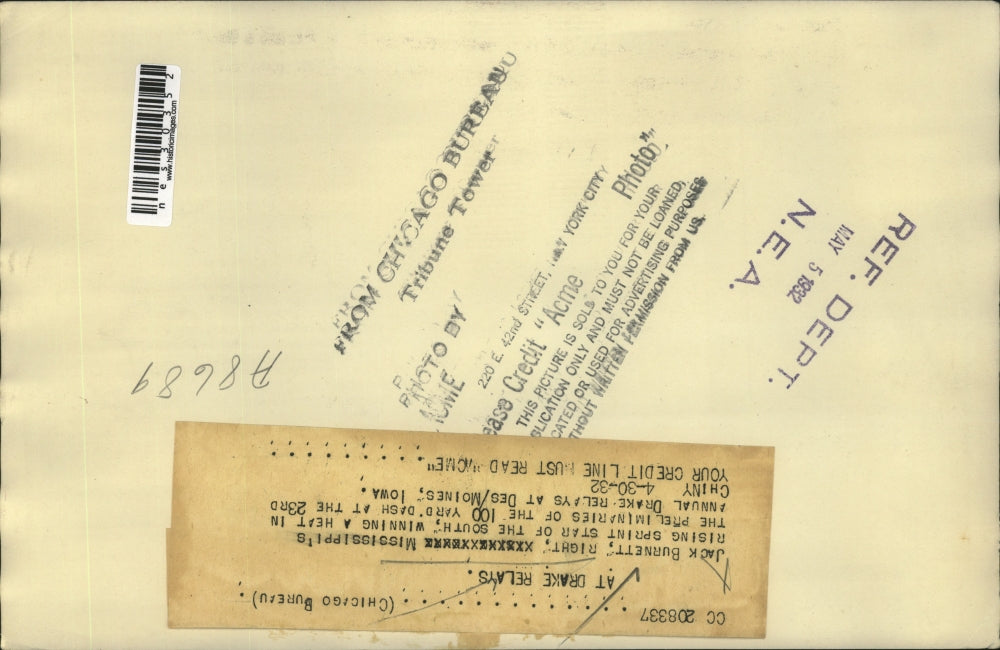 nes30352
www.historicimages.com
FROM CHICAGO BUREAU
Tribune Tower
PHOTO BY
ACME
220 E. 42nd STREET, NEW YORK CITY
Credit "Acme Photo"
THIS PICTURE IS SOLD TO YOU FOR YOUR
ONLY AND MUST NOT BE LOANED,
OR USED FOR ADVERTISING PURPOSES
WRITTEN PERMISSION FROM US.
REF. DEPT.
MAY 5 1932
N.E.A.
A8689
CC 208337 . . . . . . . . . . . . (CHICAGO BUREAU).
AT DRAKE RELAYS.
JACK BURNETT, RIGHT, MISSISSIPPI'S
RISING SPRINT STAR OF THE SOUTH, WINNING A HEAT IN
THE PRELIMINARIES OF THE 100 YARD DASH AT THE 23RD
ANNUAL DRAKE RELAYS AT DES/MOINES, IOWA.
CHINY 4-30-32
YOUR CREDIT LINE MUST READ "ACME"